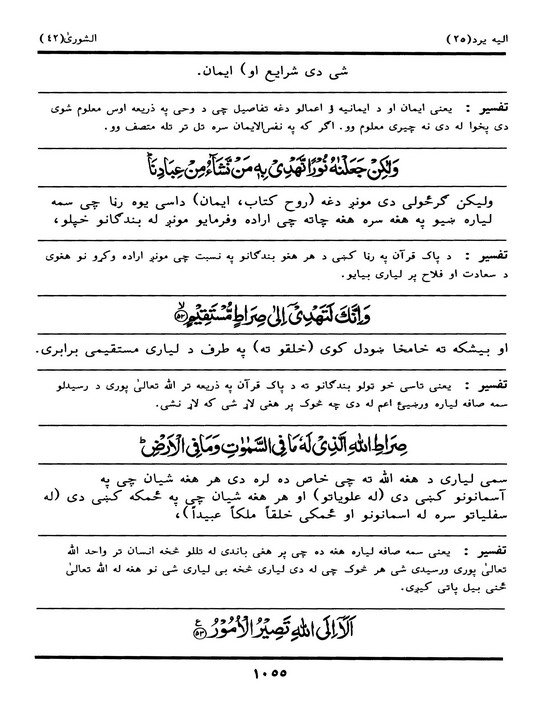 الیه یرد(۲۵) الشوریٰ(۴۲)
شی دی شرایع او) ایمان.
تفسیر : یعنی ایمان او د ایمانیه ؤ اعمالو دغه تفاصیل چی د وحی په ذریعه اوس معلوم شوی
دی پخوا له دی نه چیری معلوم وو. اگر که په نفس‌الایمان سره تل تر تله متصف وو.
وَلٰكِنْ جَعَلْنٰهُ نُوْرًا نَّهْدِیْ بِهٖ مَنْ نَّشَآءُ مِنْ عِبَادِنَا ؕ
ولیکن گرځولی دی مونږ دغه (روح کتاب، ایمان) داسی یوه رڼا چی سمه
لیاره ښیو په هغه سره هغه چاته چی اراده وفرمایو مونږ له بندگانو خپلو،
تفسیر : د پاک قرآن په رڼا کښی د هر هغو بندگانو په نسبت چی مونږ اراده وکړو نو هغوی
د سعادت او فلاح پر لیاری بیایو.
وَاِنَّكَ لَتَهْدِیْۤ اِلٰی صِرَاطٍ مُّسْتَقِیْمٍ ۙ﴿۵۲﴾
او بیشکه ته خامخا ښودل کوی (خلقو ته) په طرف د لیاری مستقیمی برابری.
تفسیر : یعنی تاسی خو ټولو بندگانو ته د پاک قرآن په ذریعه تر الله تعالیٰ پوری د رسیدلو
سمه صافه لیاره ورښیئ اعم له دی چه څوک پر هغی لاړ شی که لاړ نشی.
صِرَاطِ اللّٰهِ الَّذِیْ لَهٗ مَا فِی السَّمٰوٰتِ وَمَا فِی الْاَرْضِ ؕ
سمی لیاری د هغه الله ته چی خاص ده لره دی هر هغه شیان چی په
آسمانونو کښی دی (له علویاتو) او هر هغه شیان چی په ځمکه کښی دی (له
سفلیاتو سره له اسمانونو او ځمکی خلقاً ملکاً عبیداً)،
تفسیر : یعنی سمه صافه لیاره هغه ده چی پر هغی باندی له تللو څخه انسان تر واحد الله
تعالیٰ پوری ورسیدی شی هر څوک چی له دی لیاری څخه بی لیاری شی نو هغه له الله تعالیٰ
ځنی بیل پاتی کیږی.
اَلَاۤ اِلَی اللّٰهِ تَصِیْرُ الْاُمُوْرُ ﴿۵۳﴾ ع
۱۰۵۵